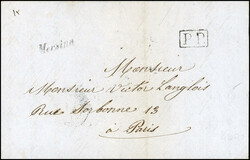 Mersina
P.P.
Monsieur
Monsieur Victor Langlois
Rue Sorbonne 13
à Paris